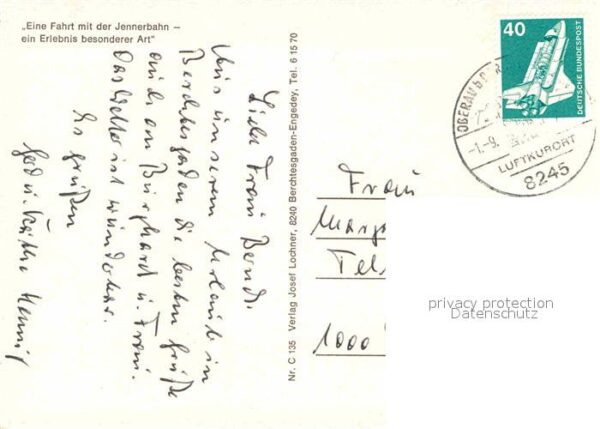 „Eine Fahrt mit der Jennerbahn –
ein Erlebnis besonderer Art"
Liebe Frau Bendt.
Aus unserem Urlaub in
Berchtesgaden die besten Grüße
auch an Burghard u. Frau.
Das Wetter ist wunderbar.
Es grüßen
Gerd u. Käthe Hennig
Nr. C 135 Verlag Josef Lochner, 8240 Berchtesgaden-Engedey, Tel. 6 15 70
40
DEUTSCHE BUNDESPOST
OBERAU b.
-1.-9.
LUFTKURORT
8245
Frau
Marg
Tel
1000
privacy protection
Datenschutz